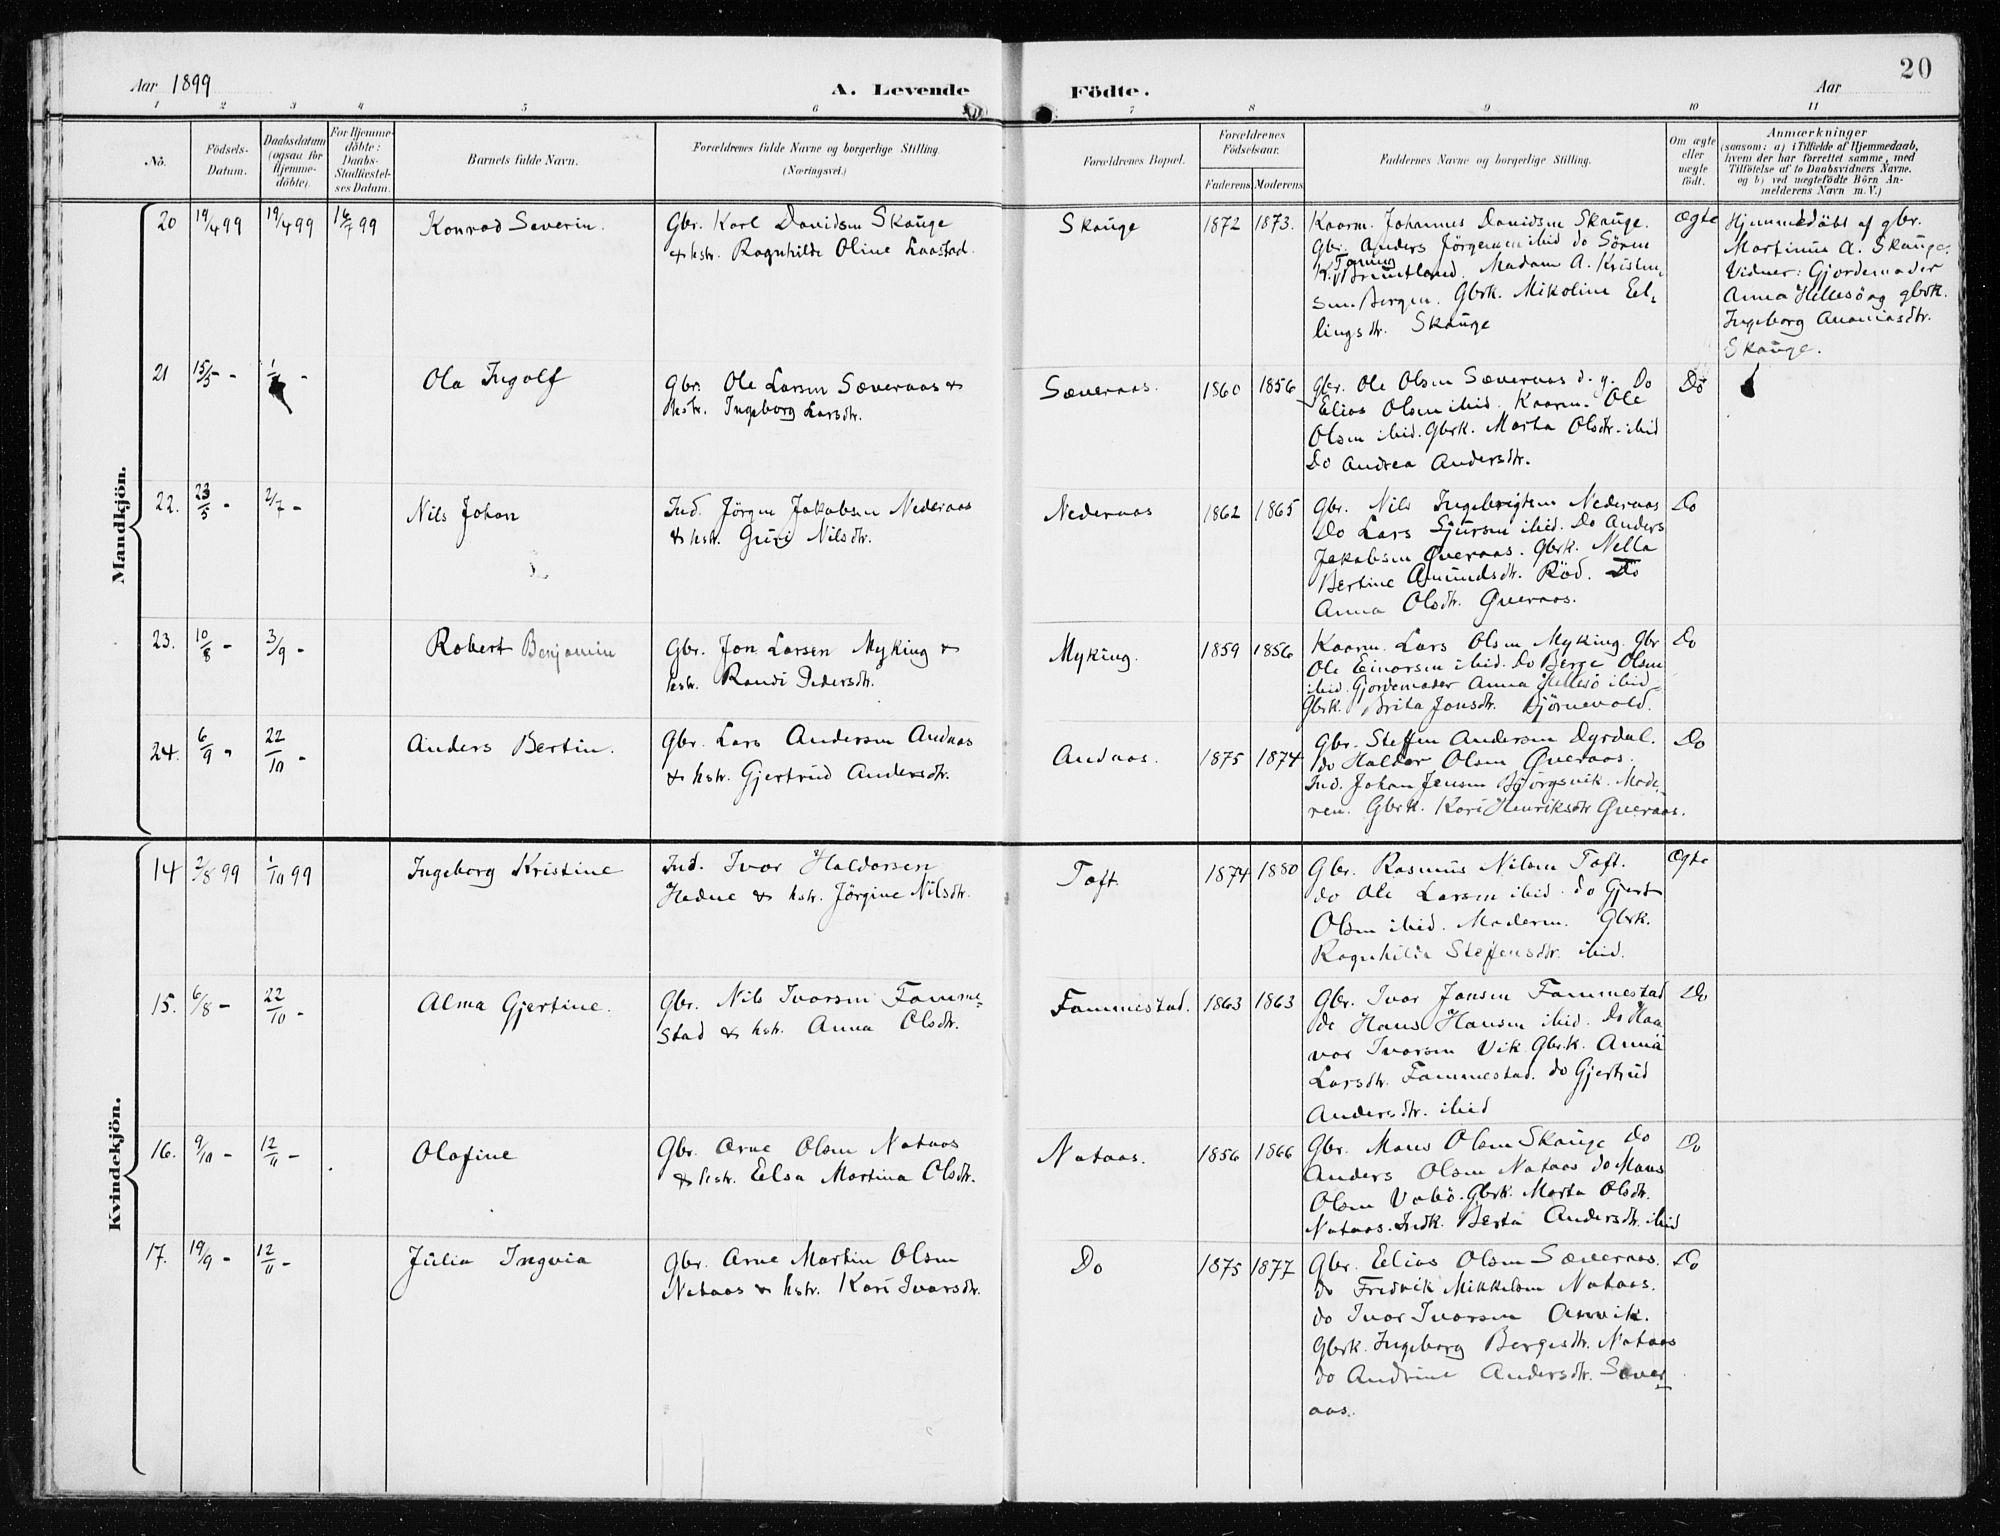 20
Aar 1899
A. Levende Födte.
Aar
1 2 3 4 5 6 7 8 9 10 11
No.
Födsels-
Datum.
Daabsdatum
(ogsaa for
Hjemme-
döbte).
For Hjemme-
döbte:
Daabs-
Stadfæstel-
ses Datum.
Barnets fulde Navn.
Forældrenes fulde Navne og borgerlige Stilling.
(Næringsvei.)
Forældrenes Bopæl.
Forældrenes
Födselsaar.
Faderens Moderens
Faddernes Navne og borgerlige Stilling.
Om ægte
eller
uægte
födt.
Anmærkninger
(saasom: a) i Tilfælde af Hjemmedaab,
hvem der har forrettet samme, med
Tilföielse af to Daabsvidners Navne.
og b) ved uægtefödte Börn An-
melderens Navn m. V.)
Mandkjön.
20 19/4 99 19/4 99 16/7 99
Konrad Severin.
Gbr. Karl Davidsen Skauge
& hstr. Ragnhilde Oline Laastad.
Skauge
1872 1873.
Kaarm. Johannes Davidsen Skauge.
Gbr. Anders Jörgensen ibid do Sören
K. Töming
Bruntland. Madam A. Kristen,
sen Bergen. Gbrk. Mikoline Eel-
lingsdtr. Skauge
Ægte
Hjemmedöbt af gbr.
Martinus A. Skauge.
Vidner: Gjordemoder
Anna Hellesö og gbrk.
Ingeborg Ananiasdtr.
Skauge.
21 15/5 - -
Ola Ingolf
Gbr. Ole Larsen Sæveraas &
hstr. Ingeborg Larsdtr.
Sæveraas.
1860 1856
Gbr. Ole Olsen Sæveraas d. y. Do
Elias Olsen ibid. Kaarm. Ole
Olsen ibid. Gbrk. Marta Olsdtr. ibid
Do Andrea Andersdtr.
Do
22. 23/5 - 2/7 -
Nils Johan
Ind. Jörgen Jakobsen Nederaas
& hstr. Guri Nilsdtr.
Nederaas
1862 1865
Gbr. Nils Ingebrigtsen Nederaas
Do Lars Sjursen ibid. Do Anders
Jakobsen Øveraas. Gbrk. Nella
Bertine Amundsdtr. Röd. Do
Anna Olsdtr. Øveraas.
Do
23. 10/8 - 3/9 -
Robert Benjamin
Gbr. Jon Larsen Myking &
hstr. Randi Pedersdtr.
Myking.
1859 1856
Kaarm. Lars Olsen Myking. Gbr
Ole Einarsen ibid. Do Berge Olsen
ibid. Gjordemoder Anna Hellesö ibid
Gbrk. Brita Jonsdtr. Björnevold.
Do
24. 6/9 - 22/10 -
Anders Bertin.
Gbr. Lars Andersen Andaas
& hstr. Gjertrud Andersdtr.
Andaas.
1875 1874
Gbr. Steffen Andersen Dyrdal.
do Haldor Olsen Øveraas.
Ind. Johan Jensen Björgsvik. Mode-
ren. Gbrk. Kari Henriksdtr Øveraas.
Do
Kvindekjön.
14 2/8 99 1/10 99
Ingeborg Kristine
Ind. Ivar Haldorsen
Hedne & hstr. Jörgine Nilsdtr.
Toft.
1874 1880
Gbr. Rasmus Nilsen Toft.
do Ole Larsen ibid. do Gjert
Olsen ibid. Moderen. Gbrk.
Ragnhilda Steffensdtr. ibid.
Ægte
15. 6/8 - 22/10 -
Alma Gjertine.
Gbr. Nils Ivarsen Famme-
stad & hstr. Anna Olsdtr.
Fammestad.
1863 1863
Gbr. Ivar Jansen Fammestad
do Hans Hansen ibid. Do Haa
var Ivarsen Vik. Gbrk. Anna
Larsdtr. Fammestad. do Gjertrud
Andersdtr. ibid
Do
16. 9/10 - 12/11 -
Olafine
Gbr. Arne Olsen Nataas
& hstr. Eelsa Martina Olsdtr.
Nataas.
1856 1866
Gbr. Mons Olsen Skauge Do
Anders Olsen Nataas do Mons
Olsen Vabö. Gbrk. Marta Olsdtr.
Nataas. Indk. Berta Andersdtr. ibid
Do
17. 19/9 - 12/11 -
Julia Ingvia
Gbr. Arne Martin Olsen
Nataas & hstr. Kari Ivarsdtr.
Do
1875 1877
Gbr. Elias Olsen Sæveraas.
do Fredrik Mikkelsen Nataas.
do Ivar Ivarsen Asvik.
Gbrk. Ingeborg Bergesdtr. Nataas
do Andrine Andersdtr. Sæver
aas.
Do